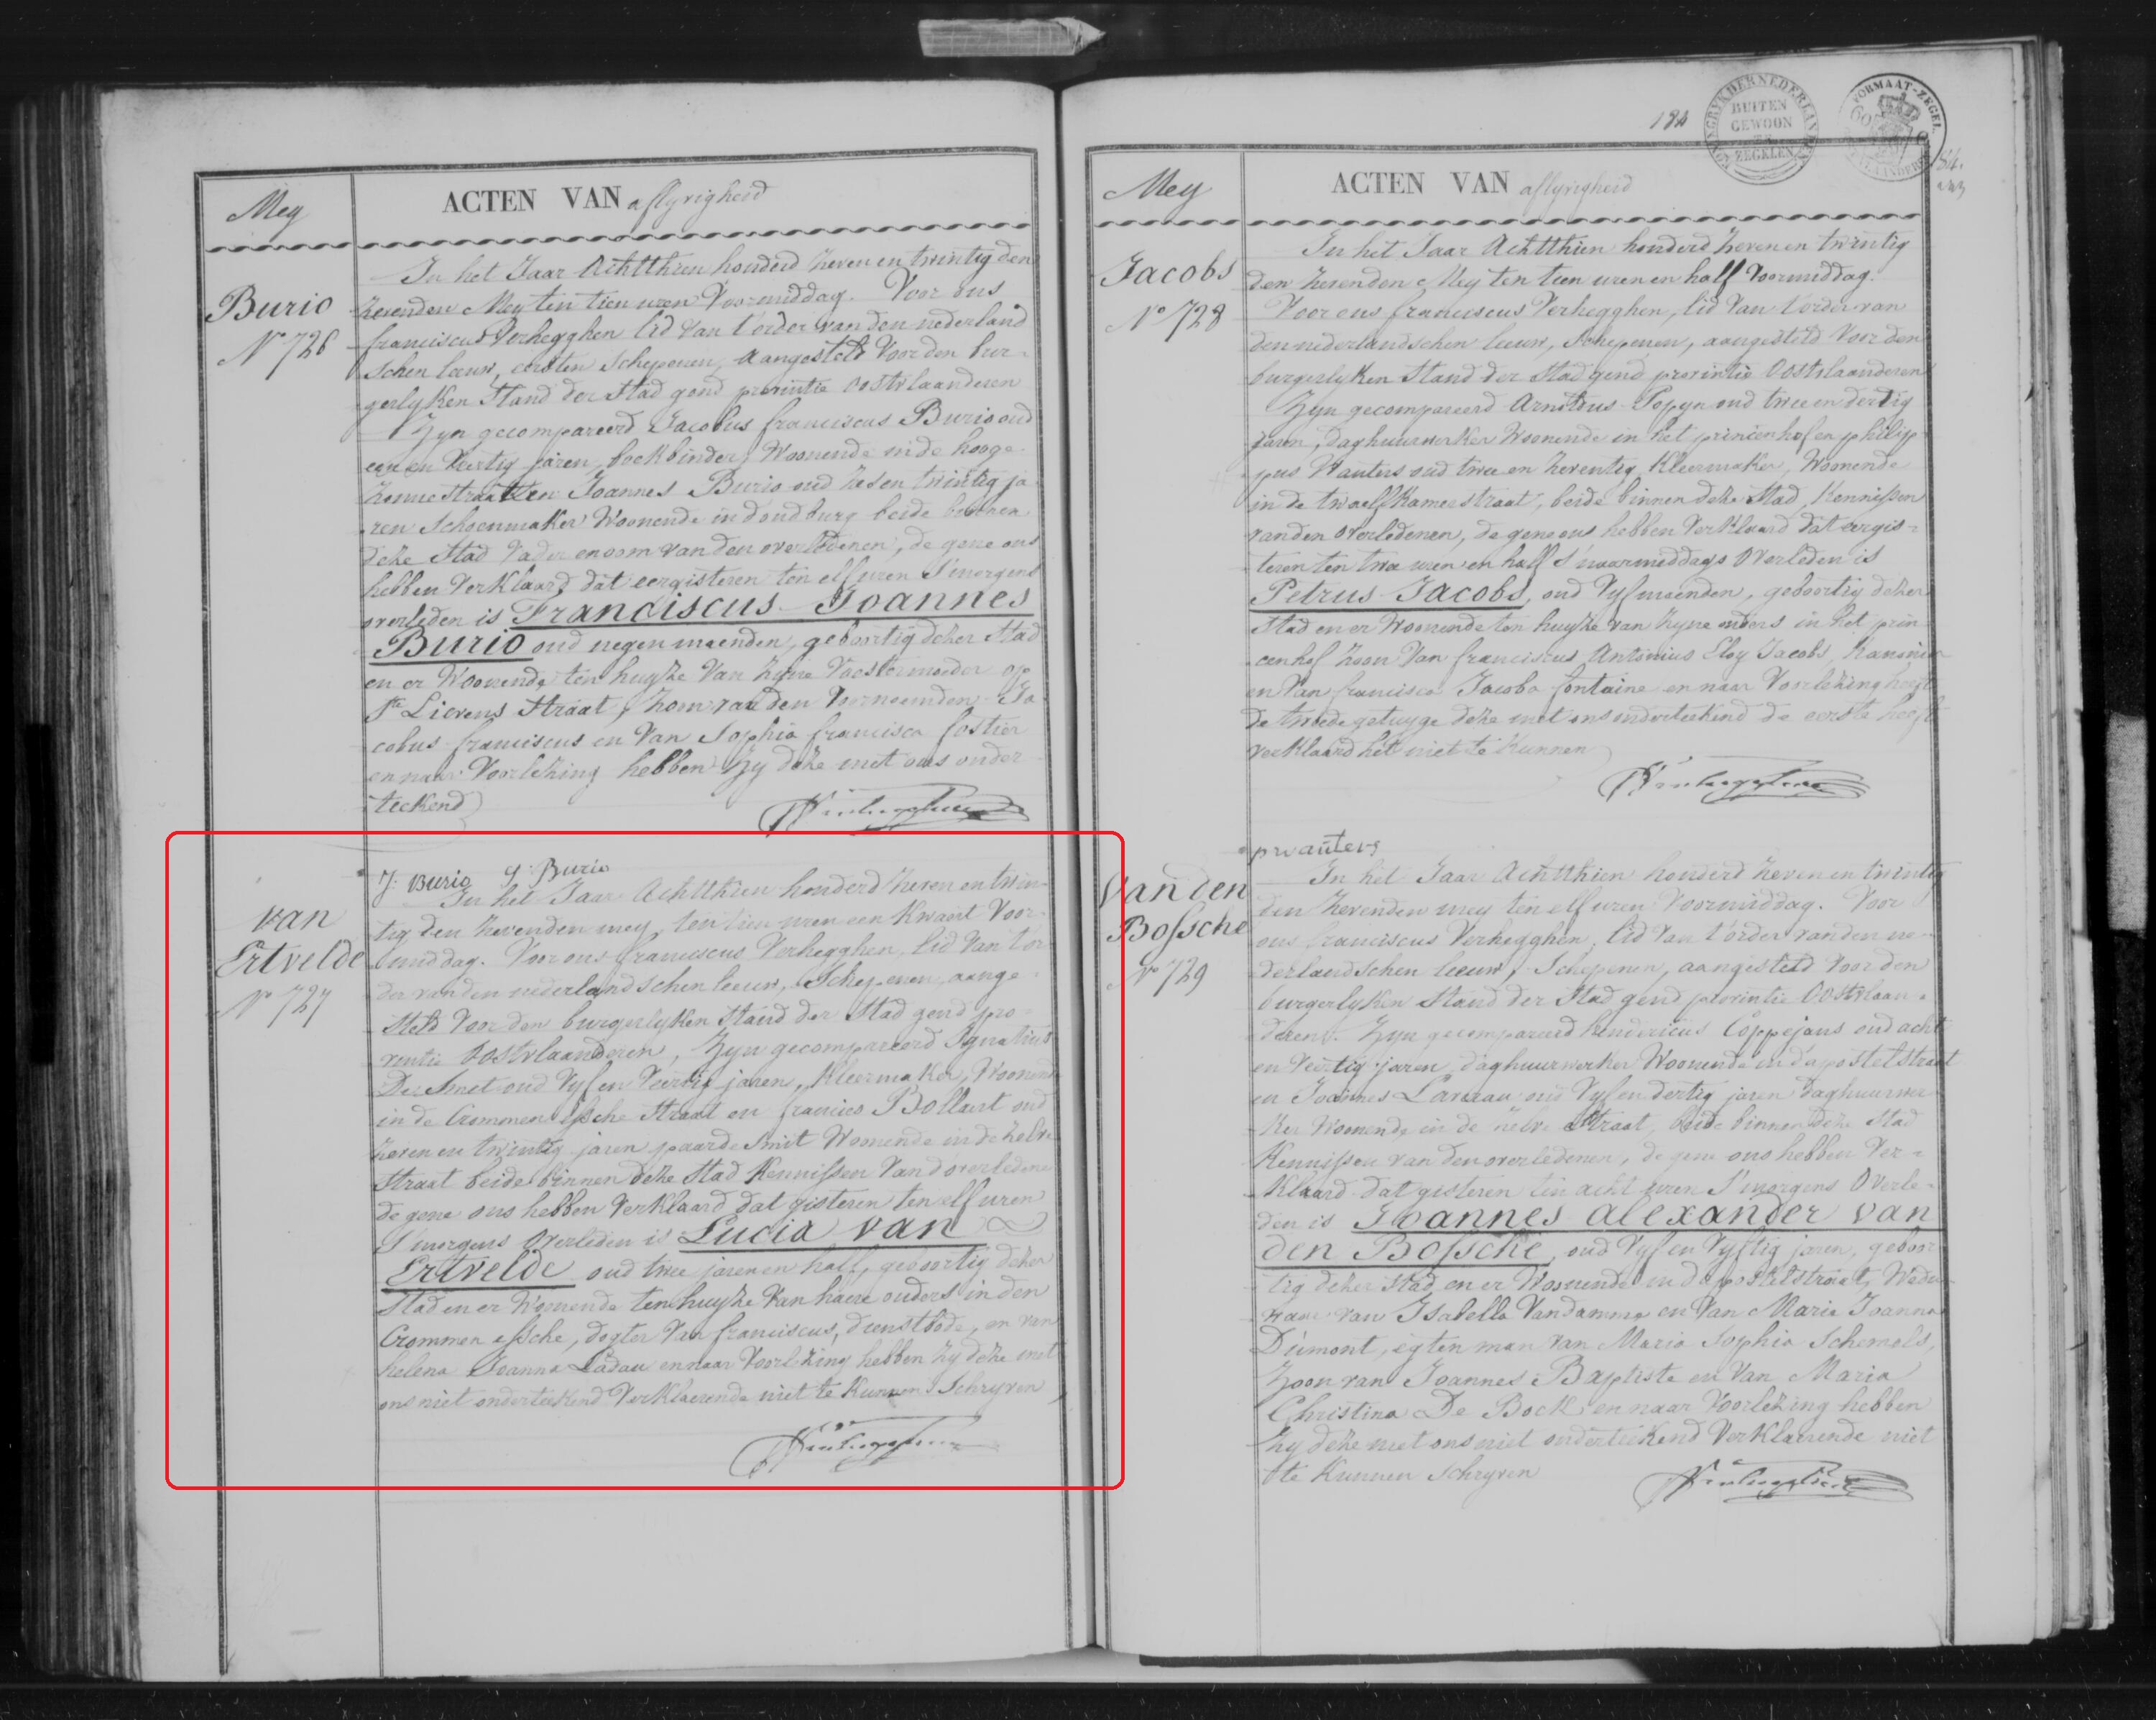 Mey
ACTEN VAN aflyvigheid
Burio
N° 726
In het Jaar Achtthien honderd zeven en twintig den
zevenden Mey ten tien uren Voormiddag. Voor ons
franciscus Verhegghen lid van t'order van den nederland
schen leeuw, eersten Schepenen, aangesteld Voor den bur-
gerlyken Stand der Stad gend provintie Oostvlaanderen
Zyn gecompareerd Jacobus franciscus Burio oud
een en veertig jaren, boekbinder, Woonende in de hooge
Zonne Straat en Joannes Burio oud zes en twintig ja
ren Schoenmaker Woonende in d'oudburg beide binnen
deze Stad Vader en oom van den overledenen, de gene ons
hebben Verklaard dat eergisteren ten elf uren S'morgens
overleden is Franciscus Joannes
Burio oud negen maenden, geboortig dezer Stad
en er Woonende ten huyze Van zyne Voestermoeder op
Ste Lievens Straat, zoon van den Voornoemden Ja
cobus franciscus en Van Sophia francisca fostier
en naar Voorlezing hebben Zy deze met ons onder
teekend
J: Burio J: Burio
van
Ertvelde
N° 727
In het Jaar Achtthien honderd zeven en twin-
tig den zevenden mey, ten tien uren een kwaert Voor-
middag. Voor ons franciscus Verhegghen, lid Van t'or-
der van den nederlandschen leeuw, Schepenen, aange-
steld Voor den burgerlyken Stand der Stad gend pro-
vintie Oostvlaanderen, Zyn gecompareerd Ignatius
De Smet oud Vyf en Veertig jaren, Kleermaker, Woonende
in de Crommen Essche Straat en francies Bollaert oud
zeven en twintig jaren paardesmit Woonende in de
Straat beide binnen deze Stad Kennissen Van d'overledene
de gene ons hebben Verklaard dat gisteren ten elf uren
S'morgens Overleden is Lucia van
Ertvelde oud twee jaren en half, geboortig dezer
Stad en er Woonende ten huyze Van haere ouders in den
Crommen Essche, dogter Van franciscus, dienstbode, en van
helena Joanna Ladau en naar Voorlezing hebben zy deze met
ons niet onderteekend Verklaerende niet te Kunnen Schryven
184
KONINGRYK DER NEDERLANDEN
BUITEN
GEWOON
TE
ZEGELEN
FORMAAT-ZEGEL
Mey
ACTEN VAN aflyvigheid
Jacobs
N° 728
In het Jaar Achtthien honderd zeven en twintig
den zevenden Mey ten tien uren en half Voormiddag.
Voor ons franciscus Verhegghen, lid Van t'order van
den nederlandschen leeuw, Schepenen, aangesteld Voor den
burgerlyken Stand der Stad gend provintie Oostvlaanderen
Zyn gecompareerd Arnoldus Popyn oud twee en dertig
jaren, daghuurwerker Woonende in het princenhof en philip
pus Wauters oud twee en zeventig, Kleermaker, Woonende
in de twaelfkamerstraat, beide binnen deze Stad, Kennissen
van den overledenen, de gene ons hebben Verklaard dat eergis-
teren ten twee uren en half S'naarmiddags Overleden is
Petrus Jacobs, oud Vyf maenden, geboortig dezer
Stad en er Woonende ten huyze van zyne ouders in het prin
cenhof zoon Van franciscus Antonius Eloy Jacobs,
en Van francisca Jacoba fontaine en naar Voorlezing heeft
de tweede getuyge deze met ons onderteekend de eerste heeft
verklaard het niet te Kunnen
p wauters
Van den
Bossche
N° 729
In het Jaar Achtthien honderd zeven en twintig
den zevenden mey ten elf uren Voormiddag. Voor
ons franciscus Verhegghen, lid Van t'order van den ne-
derlandschen leeuw, Schepenen, aangesteld Voor den
burgerlyken Stand der Stad gend provintie Oostvlaan-
deren. Zyn gecompareerd hendericus Coppejans oud acht
en Veertig jaren, daghuurwerker Woonende in d'apostelstraat
en Joannes oud Vyf en dertig jaren daghuurwer
ker Woonende in de Straat, beide binnen deze Stad
Kennissen van den overledenen, de gene ons hebben Ver-
klaard dat gisteren ten acht uren S'morgens Overle-
den is Joannes alexander van
den Bossche, oud Vyf en Vyftig jaren, geboor
tig dezer stad en er Woonende in d'apostelstraat, Wedu
waar van Isabella Vandamme en Van Maria Joanna
Dumont, egten man van Maria Sophia Schemels,
Zoon van Joannes Baptiste en Van Maria
Christina De Bock en naar Voorlezing hebben
zy deze met ons niet onderteekend Verklaerende niet
te Kunnen Schryven